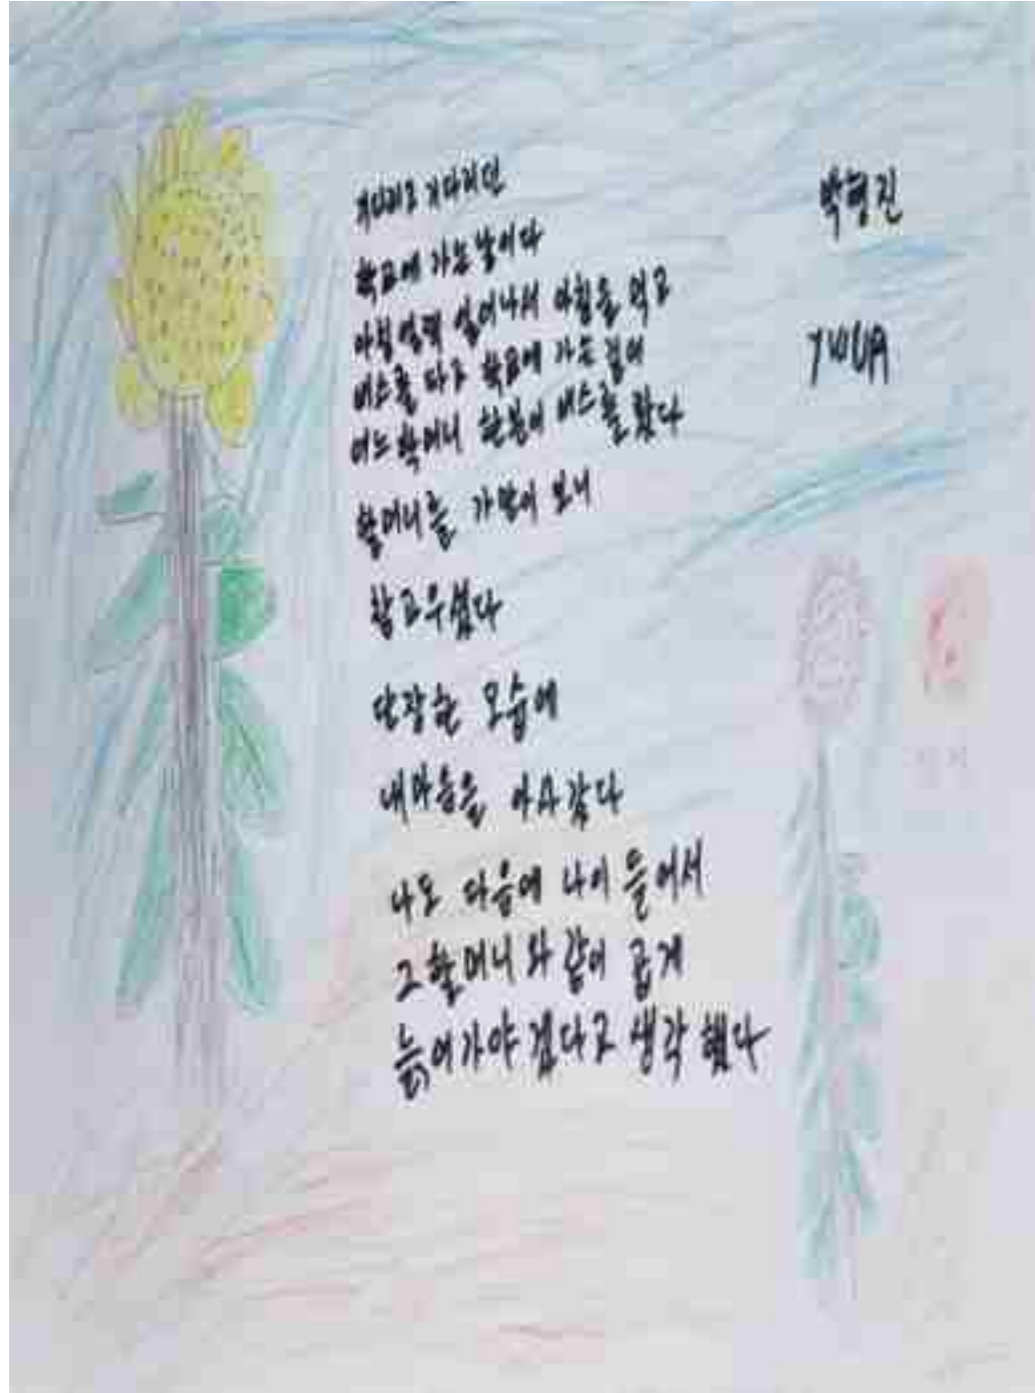 기다리고 기다리던
학교에 가는 날이다
아침 일찍 일어나서 아침을 먹고
버스를 타고 학교에 가는 길에
어느 할머니 한분이 버스를 탔다
할머니를 가만이 보니
참 고우셨다
단장한 모습에
내마음을 아사갔다
나도 다음에 나이 들어서
그할머니와 같이 곱게
늙어가야 겠다고 생각 했다
박형진
YWCA